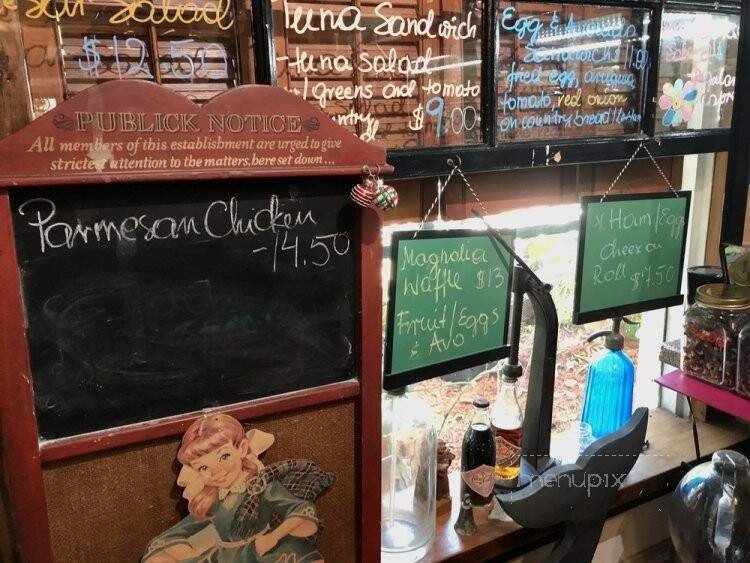 Salad
$12.50
Tuna Sandwich
-tuna salad
w/ greens and tomato
$9.00
Egg & Avocado
Sandwich
fried egg, arugula,
tomato, red onion
on country bread
PUBLICK NOTICE
All members of this establishment are urged to give
strictest attention to the matters, here set down...
Parmesan Chicken
-14.50
Magnolia
Waffle $13
Fruit/Eggs
& Avo
x Ham/Egg
Cheese on
Roll $7.50
menupix